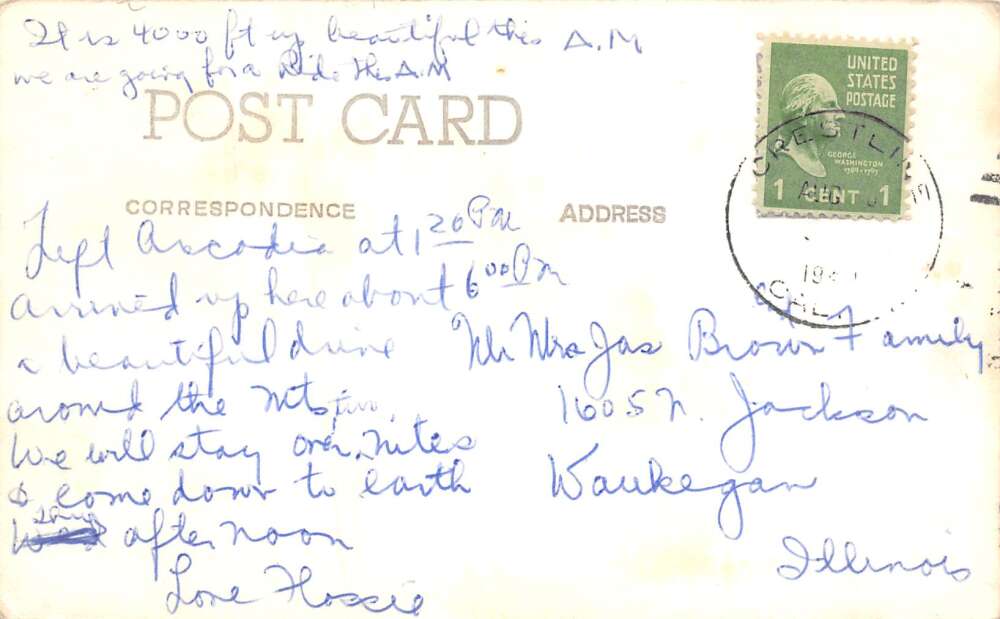 It is 4000 ft up beautiful this A.M
we are going for a Ride this A.M
POST CARD
UNITED
STATES
POSTAGE
GEORGE
WASHINGTON
1 CENT 1
CRESTLIN
AUG
19
CALIF
CORRESPONDENCE
ADDRESS
Left Arcadia at 1 20 P.M
arrived up here about 6 00 P.M
a beautiful drive
around the Mts
We will stay over nites
& come down to earth
afternoon
Love Flossie
Mr Mrs Jas Brown & Family
1605 N. Jackson
Waukegan
Illinois